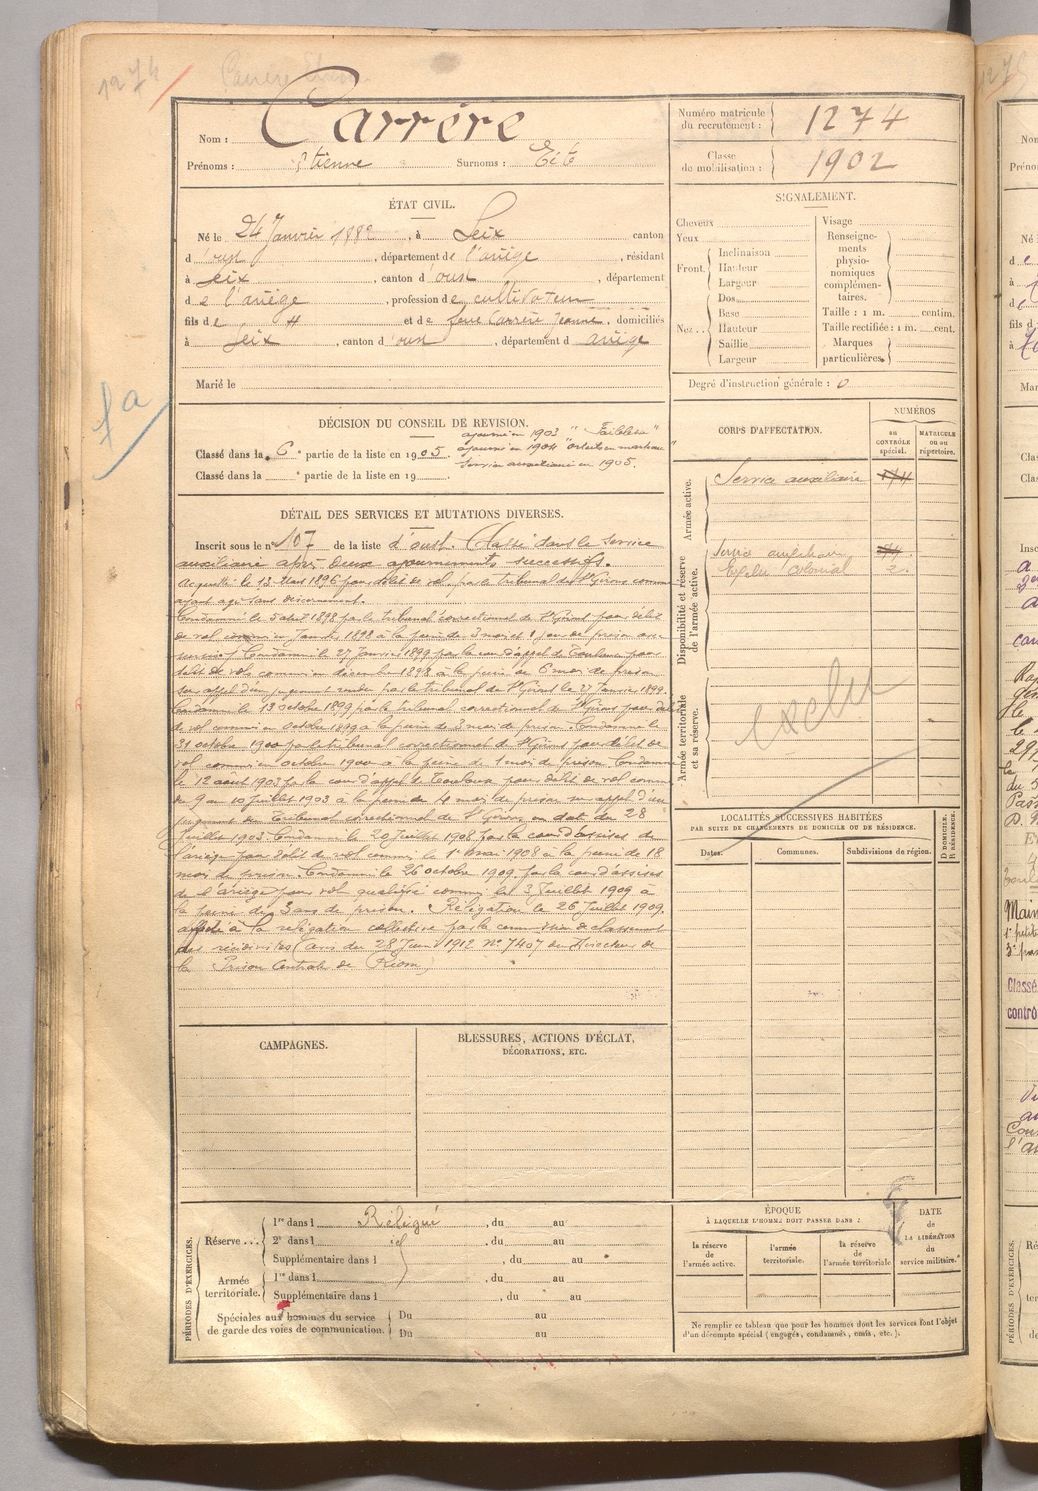 1274
Carrère
Nom : Carrère
Prénoms : Etienne Surnoms : Tité
Numéro matricule du recrutement : 1274
Classe de mobilisation : 1902
ÉTAT CIVIL.
Né le 24 Janvier 1882, à Seix canton
d'oust, département de l'ariège, résidant
à Seix, canton d'oust, département
de l'ariège, profession de cultivateur
fils de # et de feue Carrère Jeanne, domiciliés
à Seix, canton d'oust, département d ariège
Marié le
SIGNALEMENT.
Cheveux
Yeux
Front. Inclinaison
Hauteur
Largeur
Nez .. Dos
Base
Hauteur
Saillie
Largeur
Visage
Renseignements physionomiques complémentaires.
Taille : 1 m. centim.
Taille rectifiée : 1 m. cent.
Marques particulières.
Degré d'instruction générale : 0
1a
DÉCISION DU CONSEIL DE REVISION.
ajourné en 1903 "Faiblesse"
Classé dans la 6e partie de la liste en 1905. ajourné en 1904 "orteil en marteau"
Service auxiliaire en 1905.
Classé dans la e partie de la liste en 19
CORPS D'AFFECTATION.
NUMÉROS
au CONTRÔLE spécial.
MATRICULE ou au répertoire.
Armée active.
Service auxiliaire
Disponibilité et réserve de l'armée active.
Service auxiliaire
Exclu Colonial 2.
Armée territoriale et sa réserve.
exclu
DÉTAIL DES SERVICES ET MUTATIONS DIVERSES.
Inscrit sous le n° 107 de la liste d'oust. Classé dans le service
auxiliaire après deux ajournements successifs.
Acquitté le 13 Mars 1896 pour délit de vol par le tribunal de St Girons comme
ayant agi sans discernement.
Condamné le 5 août 1898 par le tribunal correctionnel de St Girons pour délit
de vol commis en Janvier 1898 à la peine de 3 mois et 1 jour de prison avec
sursis. Condamné le 27 Janvier 1899 par la cour d'appel de Toulouse pour
délit de vols commis en décembre 1898 à la peine de 6 mois de prison
sur appel d'un jugement rendu par le tribunal de St Girons le 27 Janvier 1899.
Condamné le 13 octobre 1899 par le tribunal correctionnel de St Girons pour délit
de vol commis en octobre 1899 à la peine de 3 mois de prison. Condamné le
31 octobre 1900 par le tribunal correctionnel de St Girons pour délit de
vol commis en octobre 1900 à la peine de 1 mois de prison. Condamné
le 12 août 1903 par la cour d'appel de Toulouse pour délit de vol commis
du 9 au 10 juillet 1903 à la peine de 4 mois de prison sur appel d'un
jugement du Tribunal correctionnel de St Girons en date du 28
Juillet 1903. Condamné le 20 Juillet 1908 par la cour d'assises de
l'ariège pour délit de vol commis le 1er mai 1908 à la peine de 18
mois de prison. Condamné le 26 octobre 1909 par la cour d'assises
de l'Ariège pour vol qualifié commis le 3 Juillet 1909 à
la peine de 3 ans de prison. Rélégation le 26 Juillet 1909.
affecté à la relégation collective par la commission de classement
des récidivistes (avis du 28 Juin 1912 N° 7407 du Directeur de
la Prison Centrale de Riom)
LOCALITÉS SUCCESSIVES HABITÉES
PAR SUITE DE CHANGEMENTS DE DOMICILE OU DE RÉSIDENCE.
Dates.
Communes.
Subdivisions de région.
D DOMICILE. R RÉSIDENCE.
CAMPAGNES.
BLESSURES, ACTIONS D'ÉCLAT,
DÉCORATIONS, ETC.
PÉRIODES D'EXERCICES.
Réserve . . . 1re dans l Rélégué, du au
2e dans l id, du au
Supplémentaire dans l, du au
Armée territoriale. 1re dans l, du au
Supplémentaire dans l, du au
Spéciales aux hommes du service Du au
de garde des voies de communication. Du au
ÉPOQUE
À LAQUELLE L'HOMME DOIT PASSER DANS :
la réserve de l'armée active.
l'armée territoriale.
la réserve de l'armée territoriale
DATE de LA LIBÉRATION du service militaire.
Ne remplir ce tableau que pour les hommes dont les services font l'objet
d'un décompte spécial (engagés, condamnés, omis, etc.).